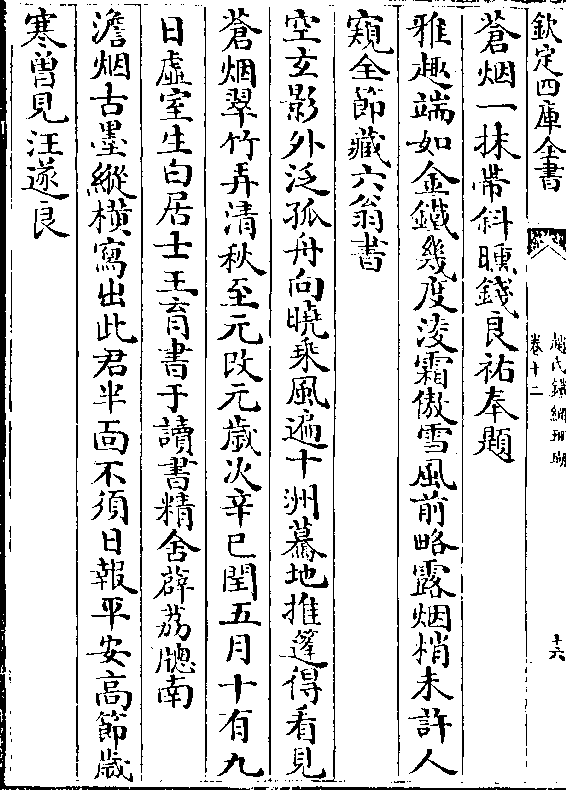 欽定四庫全書
趙氏鐵網珊瑚
卷十二
十六
蒼烟一抹帶斜曛錢良祐奉題
雅趣端如金鐵幾度淩霜傲雪風前略露烟梢未許人
窺全節藏六翁書
空玄影外泛孤舟向曉乘風遍十洲驀地推篷得看見
蒼烟翠竹弄清秋至元改元歲次辛巳閏五月十有九
日虛室生白居士王育書于讀書精舍薜荔牕南
澹烟古墨縱橫寫出此君半面不須日報平安高節歲
寒曽見汪遂良